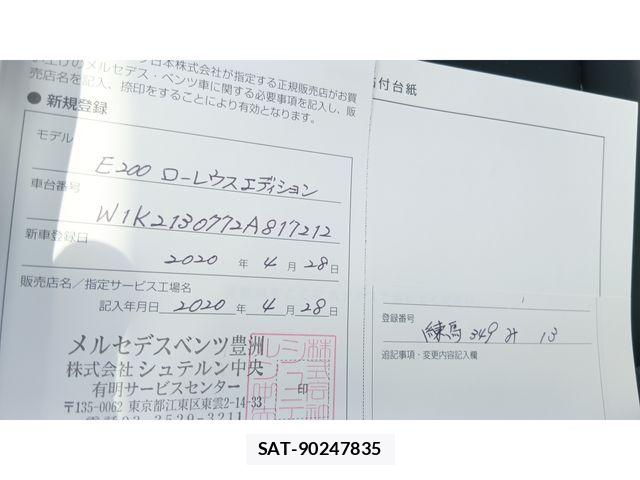 日本株式会社が指定する正規販売店がお買
い上げのメルセデス・ベンツ車に関する必要事項を記入し、販
売店名を記入、捺印をすることにより有効となります。
● 新規登録
モデル
E200 ローレウスエディション
車台番号
W1K2130772A817212
新車登録日
2020 年 4 月 28 日
販売店名／指定サービス工場名
記入年月日 2020 年 4 月 28 日
メルセデスベンツ豊洲
株式会社 シュテルン中央
有明サービスセンター
〒135-0062 東京都江東区東雲2-14-33
印
付台紙
登録番号
練馬 349 み 13
追記事項・変更内容記入欄
SAT-90247835